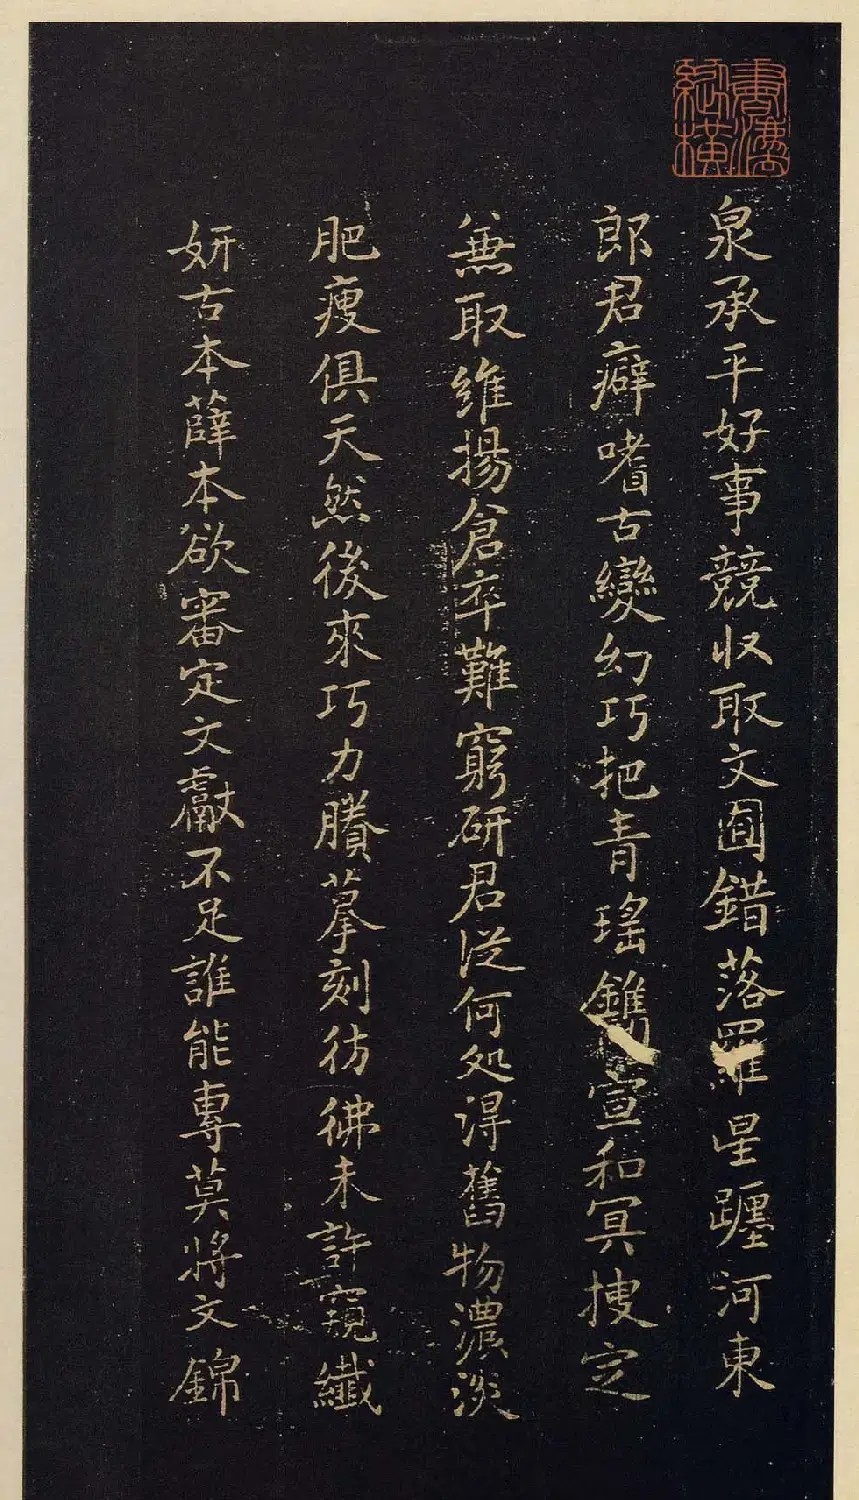 書濤縱橫
泉承平好事競收取文圖錯落羅星躔河東
郎君癖嗜古變幻巧把青瑤鐫宣和冥搜定
兼取維揚倉卒難窮研君從何処得舊物濃淡
肥瘦俱天然後來巧力賸摹刻彷彿未許窺纖
妍古本薛本欲審定文獻不足誰能專莫將文錦